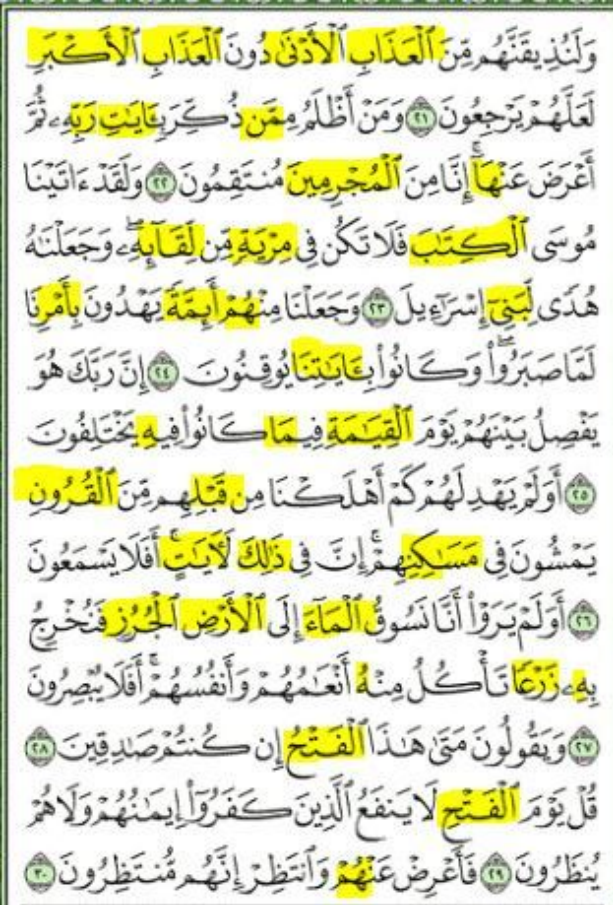 وَلَنُذِيقَنَّهُم مِّنَ ٱلْعَذَابِ ٱلْأَدْنَىٰ دُونَ ٱلْعَذَابِ ٱلْأَكْبَرِ
لَعَلَّهُمْ يَرْجِعُونَ ٢١ وَمَنْ أَظْلَمُ مِمَّن ذُكِّرَ بِـَٔايَٰتِ رَبِّهِۦ ثُمَّ
أَعْرَضَ عَنْهَآ ۚ إِنَّا مِنَ ٱلْمُجْرِمِينَ مُنتَقِمُونَ ٢٢ وَلَقَدْ ءَاتَيْنَا
مُوسَى ٱلْكِتَٰبَ فَلَا تَكُن فِى مِرْيَةٍ مِّن لِّقَآئِهِۦ ۖ وَجَعَلْنَٰهُ
هُدًى لِّبَنِىٓ إِسْرَٰٓءِيلَ ٢٣ وَجَعَلْنَا مِنْهُمْ أَئِمَّةً يَهْدُونَ بِأَمْرِنَا
لَمَّا صَبَرُوا۟ ۖ وَكَانُوا۟ بِـَٔايَٰتِنَا يُوقِنُونَ ٢٤ إِنَّ رَبَّكَ هُوَ
يَفْصِلُ بَيْنَهُمْ يَوْمَ ٱلْقِيَٰمَةِ فِيمَا كَانُوا۟ فِيهِ يَخْتَلِفُونَ
٢٥ أَوَلَمْ يَهْدِ لَهُمْ كَمْ أَهْلَكْنَا مِن قَبْلِهِم مِّنَ ٱلْقُرُونِ
يَمْشُونَ فِى مَسَٰكِنِهِمْ ۚ إِنَّ فِى ذَٰلِكَ لَءَايَٰتٍ ۖ أَفَلَا يَسْمَعُونَ
٢٦ أَوَلَمْ يَرَوْا۟ أَنَّا نَسُوقُ ٱلْمَآءَ إِلَى ٱلْأَرْضِ ٱلْجُرُزِ فَنُخْرِجُ
بِهِۦ زَرْعًا تَأْكُلُ مِنْهُ أَنْعَٰمُهُمْ وَأَنفُسُهُمْ ۖ أَفَلَا يُبْصِرُونَ
٢٧ وَيَقُولُونَ مَتَىٰ هَٰذَا ٱلْفَتْحُ إِن كُنتُمْ صَٰدِقِينَ ٢٨
قُلْ يَوْمَ ٱلْفَتْحِ لَا يَنفَعُ ٱلَّذِينَ كَفَرُوٓا۟ إِيمَٰنُهُمْ وَلَا هُمْ
يُنظَرُونَ ٢٩ فَأَعْرِضْ عَنْهُمْ وَٱنتَظِرْ إِنَّهُم مُّنتَظِرُونَ ٣٠